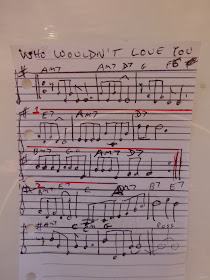 WHO WOULDN'T LOVE YOU
AM7 AM7 D7 G
1 E7 AM7 D7
BM7 AM7 D7
2 E7 G AM7 B7 E7
AM7 C G